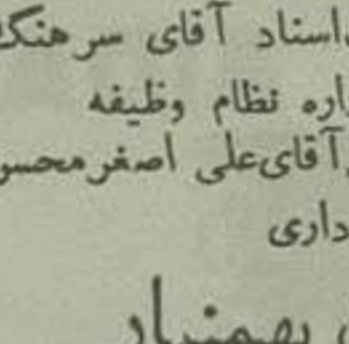 اسناد آقای سرهنگ
اره نظام وظیفه
آقای علی اصغر محسن
داری
بهمنیار